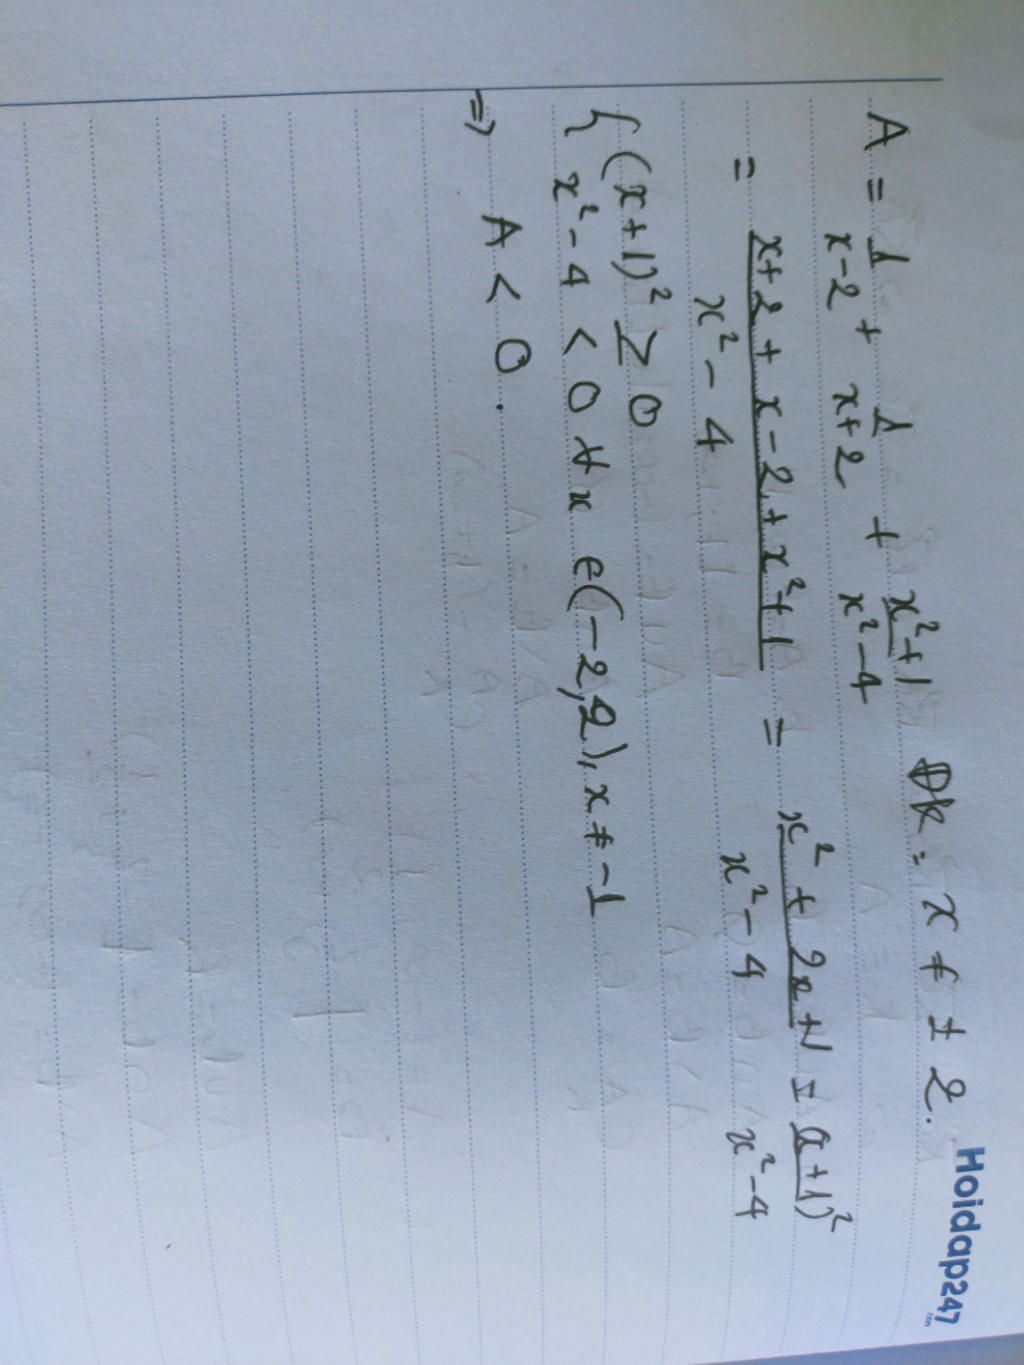 Hoidap247
.com
A = 1/(x-2) + 1/(x+2) + (x²+1)/(x²-4) Đk: x ≠ ±2.
= (x+2+x-2+x²+1)/(x²-4) = (x²+2x+1)/(x²-4) = (x+1)²/(x²-4)
{ (x+1)² ≥ 0
x²-4 < 0 ∀x ∈(-2,2), x ≠ -1
=> A < 0.